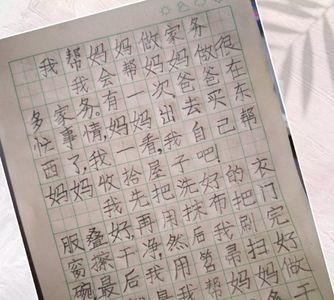 我帮妈妈做家务
我会帮妈妈做很
多家务。有一次爸爸在
忙事情,妈妈出去买东
西了,我一看,我自己帮
妈妈收拾屋子吧
我先把洗好的衣
服叠好,再用抹布把门
窗擦干净,然后我刷完
碗最后我用笤帚扫好
是我帮妈妈做